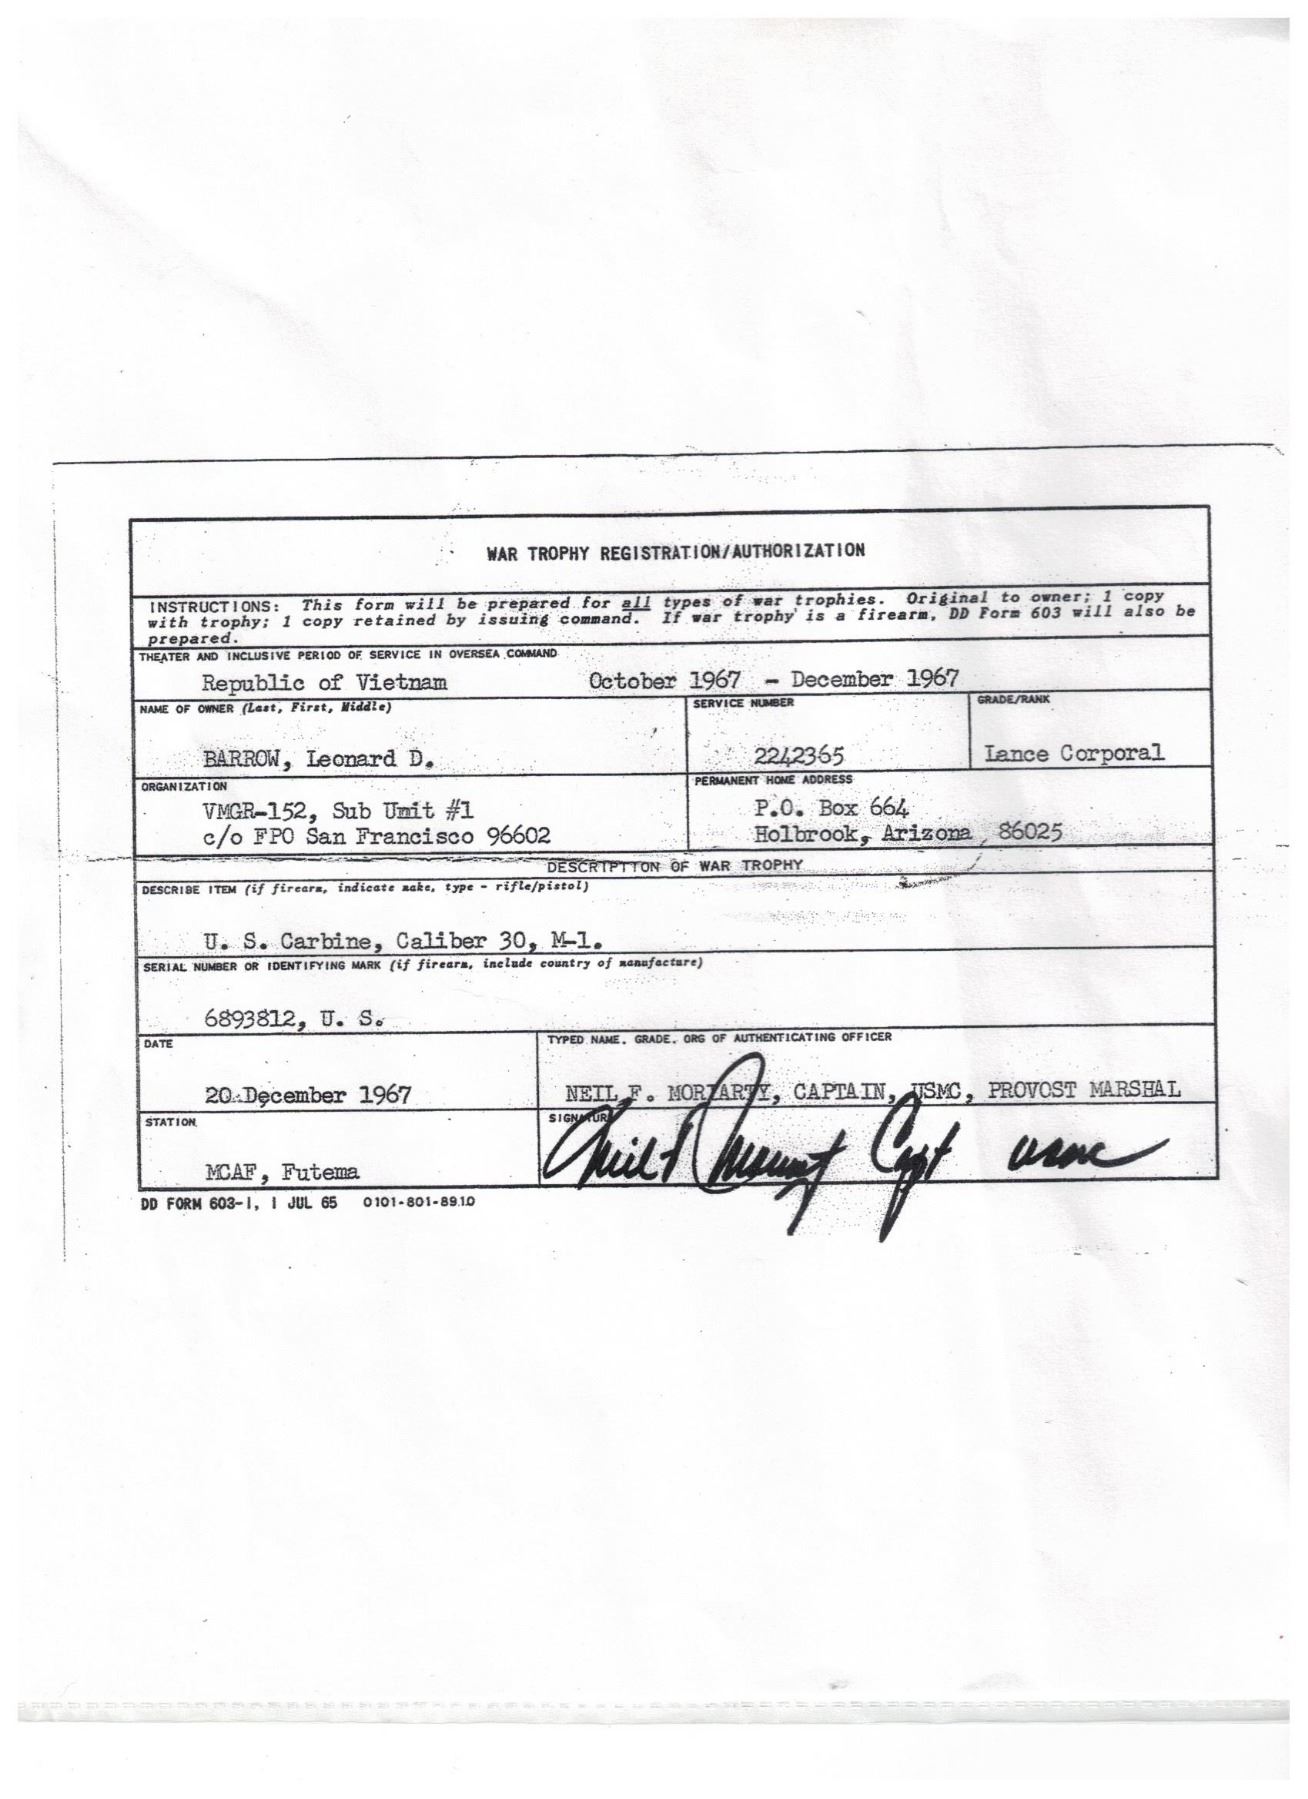 WAR TROPHY REGISTRATION/AUTHORIZATION
INSTRUCTIONS: This form will be prepared for all types of war trophies. Original to owner; 1 copy
with trophy; 1 copy retained by issuing command. If war trophy is a firearm, DD Form 603 will also be
prepared.
THEATER AND INCLUSIVE PERIOD OF SERVICE IN OVERSEA COMMAND
Republic of Vietnam October 1967 - December 1967
NAME OF OWNER (Last, First, Middle) SERVICE NUMBER GRADE/RANK
BARROW, Leonard D. 2242365 Lance Corporal
ORGANIZATION PERMANENT HOME ADDRESS
VMGR-152, Sub Unit #1 P.O. Box 664
c/o FPO San Francisco 96602 Holbrook, Arizona 86025
DESCRIPTION OF WAR TROPHY
DESCRIBE ITEM (if firearm, indicate make, type - rifle/pistol)
U. S. Carbine, Caliber 30, M-1.
SERIAL NUMBER OR IDENTIFYING MARK (if firearm, include country of manufacture)
6893812, U. S.
DATE TYPED NAME, GRADE, ORG OF AUTHENTICATING OFFICER
20 December 1967 NEIL F. MORIARTY, CAPTAIN, USMC, PROVOST MARSHAL
STATION SIGNATURE
MCAF, Futema Neil F Moriarty Capt USMC
DD FORM 603-1, 1 JUL 65 0101-801-8910